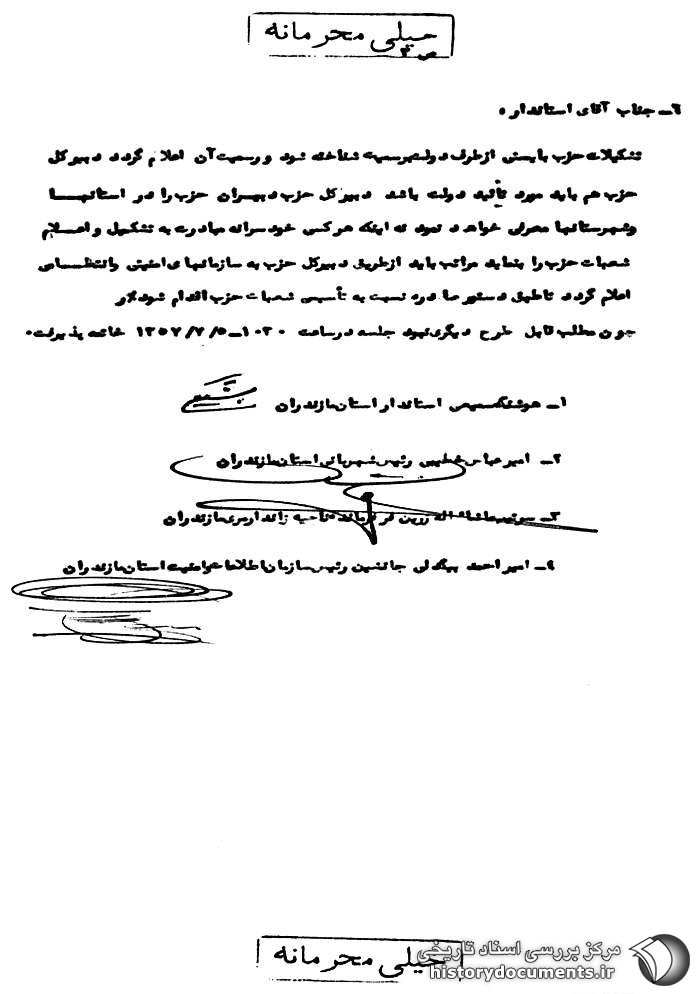 خیلی محرمانه
۶ـ جناب آقای استاندار ه
تشکیلات حزب بایستی از طرف دولت برسمیت شناخته شود و رسمیت آن اعلام گردد دبیر کل
حزب هم باید مورد تأئید دولت باشد دبیر کل حزب دبیران حزب را در استانهـــا
وشهرستانها معرفی خواهد نمود نه اینکه هر کس خودسرانه مبادرت به تشکیل و اعـلام
شعبات حزب را بنماید مراتب باید از طریق دبیر کل حزب به سازمانهای امنیتی وانتظـامی
اعلام گردد تا طبق دستور صادره نسبت به تأسیس شعبات حزب اقدام شود
چون مطلب قابل طرح دیگری نبود جلسه در ساعت ۱۰۳۰ـ ۱۳۵۷/۷/۵ خاتمه پذیرفت۰
۱ـ هوشنگ استاندار استان مازندران
۲ـ امیر عباس خطیبی رئیس شهربانی استان مازندران
۳ـ سرتیپ ماشااله رزین فر فرمانده ناحیه ژاندارمری مازندران
۴ـ امیر احمد بیگدلی جانشین رئیس سازمان اطلاعات و امنیت استان مازندران
خیلی محرمانه
مرکز بررسی اسناد تاریخی
historydocuments.ir